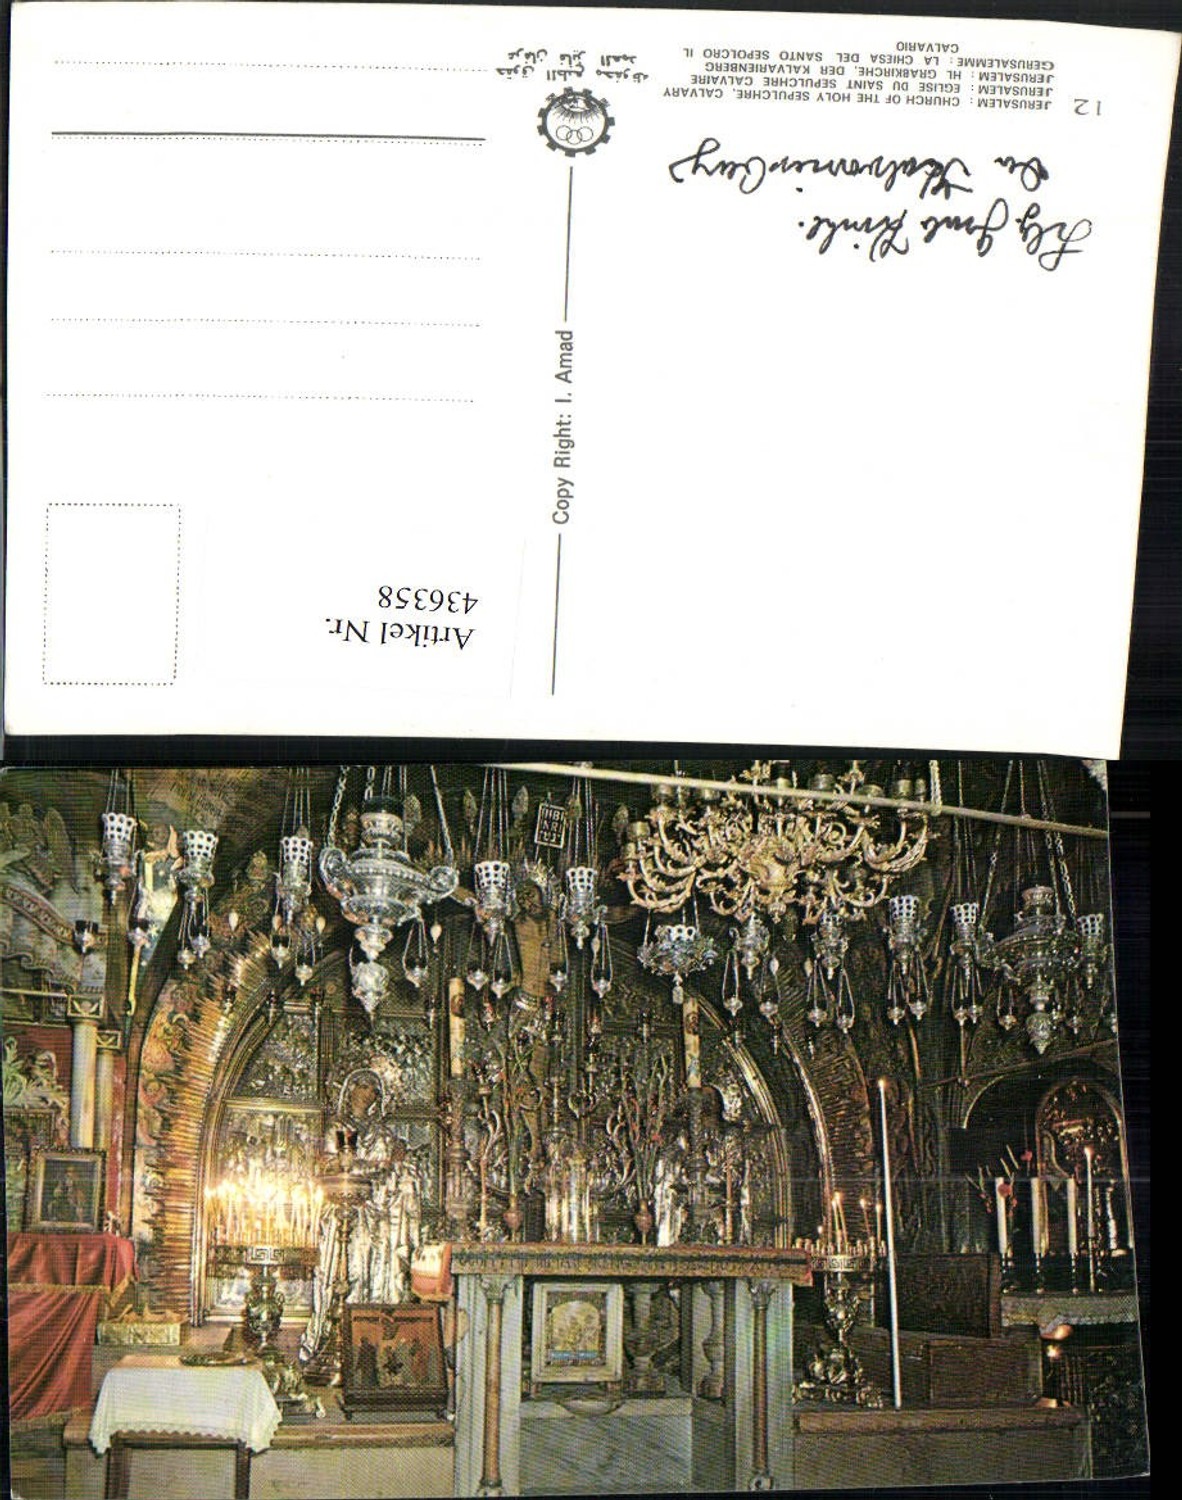 12
JERUSALEM : CHURCH OF THE HOLY SEPULCHRE, CALVARY
JERUSALEM : EGLISE DU SAINT SEPULCHRE CALVAIRE
JERUSALEM : HL GRABKIRCHE, DER KALVARIENBERG
GERUSALEMME : LA CHIESA DEL SANTO SEPOLCRO IL
CALVARIO
حقوق الطبع محفوظه
Der Kalvarienberg
Hlg. Grab Kirche.
Copy Right: I. Amad
Artikel Nr.
436358